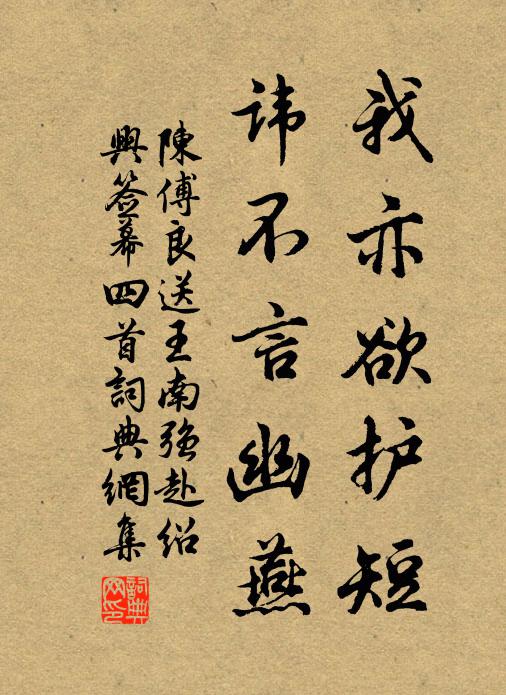 我亦欲护短
讳不言幽燕
陳傅良送王南強赴紹
興簽幕四首詞典網集
詞典
网印